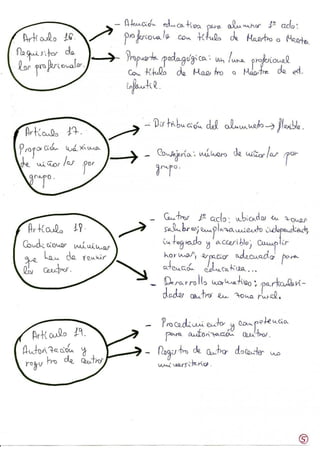 Artículo 16.
Requisitos de
los profesionales
- Atención educativa para alumnos 1º ciclo:
profesionales con título de Maestro o Maestra
- Propuesta pedagógica: un/una profesional
con título de Maestro o Maestra de ed.
infantil.
Artículo 17.
Proporción máxima
de niños/as por
grupo.
- Distribución del alumnado → flexible.
- Consejería: número de niños/as por
grupo.
Artículo 18.
Condiciones mínimas
que han de reunir
los centros.
- Centros 1º ciclo: ubicados en zonas
salubres; emplazamiento independiente,
integrado y accesible; cumplir
normas, espacios adecuados para
atención educativa...
- Desarrollo normativo: particulari-
dades centros en zona rural.
Artículo 19.
Autorización y
registro de centros
- Procedimiento y competencia
para autorización centros.
- Registro de centros docentes no
universitarios.
5